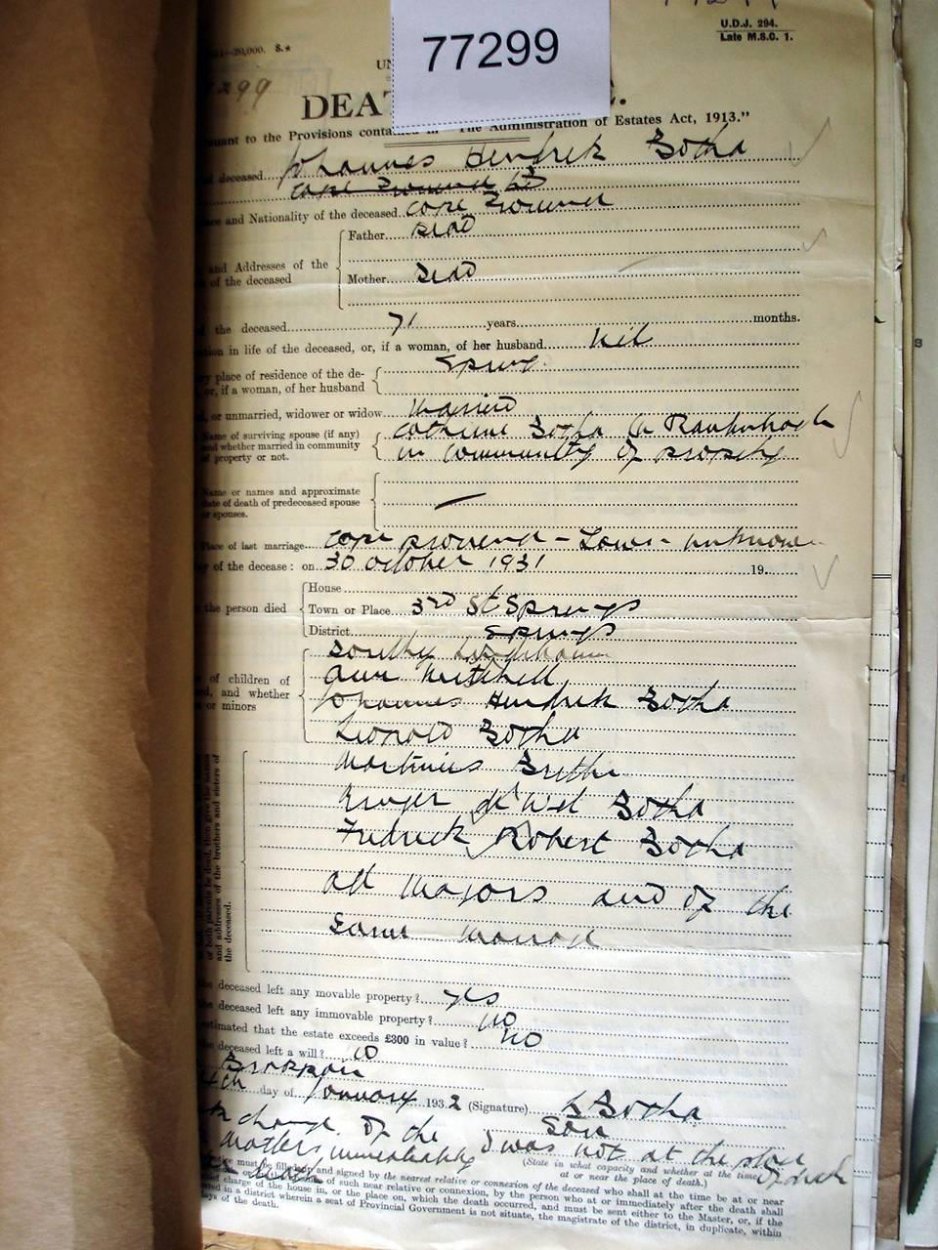 77299
U.D.J. 294.
Late M.S.C. 1.
20,000. S.*
299
DEA
to the Provisions "The Administration of Estates Act, 1913."
deceased Johannes Hendrik Botha
and Nationality of the deceased Cape Provence
Father Dead
and Addresses of the
of the deceased
Mother Dead
the deceased 71 years months.
in life of the deceased, or, if a woman, of her husband Nil
place of residence of the de-
or, if a woman, of her husband
Springs
or unmarried, widower or widow Married
Name of surviving spouse (if any)
and whether married in community
of property or not.
Botha
in community of property
Name or names and approximate
date of death of predeceased spouse
or spouses.
Place of last marriage Cape Provence - Town - unknown
of the decease: on 30 October 1931 19
the person died
House
Town or Place 3rd St Springs
District Springs
of children of
and whether
or minors
Ann Mitchell
Johannes Hendrik Botha
Leonard Botha
Martinus
de Wet Botha
Fredrick Robert Botha
all Majors and of the
same
and addresses of the brothers and sisters of
the deceased.
deceased left any movable property? yes
deceased left any immovable property? No
estimated that the estate exceeds £300 in value? No
deceased left a will? No
Brakpan
day of January 1932 (Signature) Botha
Son
charge of the
I was not at the place
matters immediately
of death
(State in what capacity and whether at the time
at or near the place of death.)
must be filled and signed by the nearest relative or connexion of the deceased who shall at the time be at or near
of such near relative or connexion, by the person who at or immediately after the death shall
charge of the house in, or the place on, which the death occurred, and must be sent either to the Master, or, if the
in a district wherein a seat of Provincial Government is not situate, the magistrate of the district, in duplicate, within
days of the death.